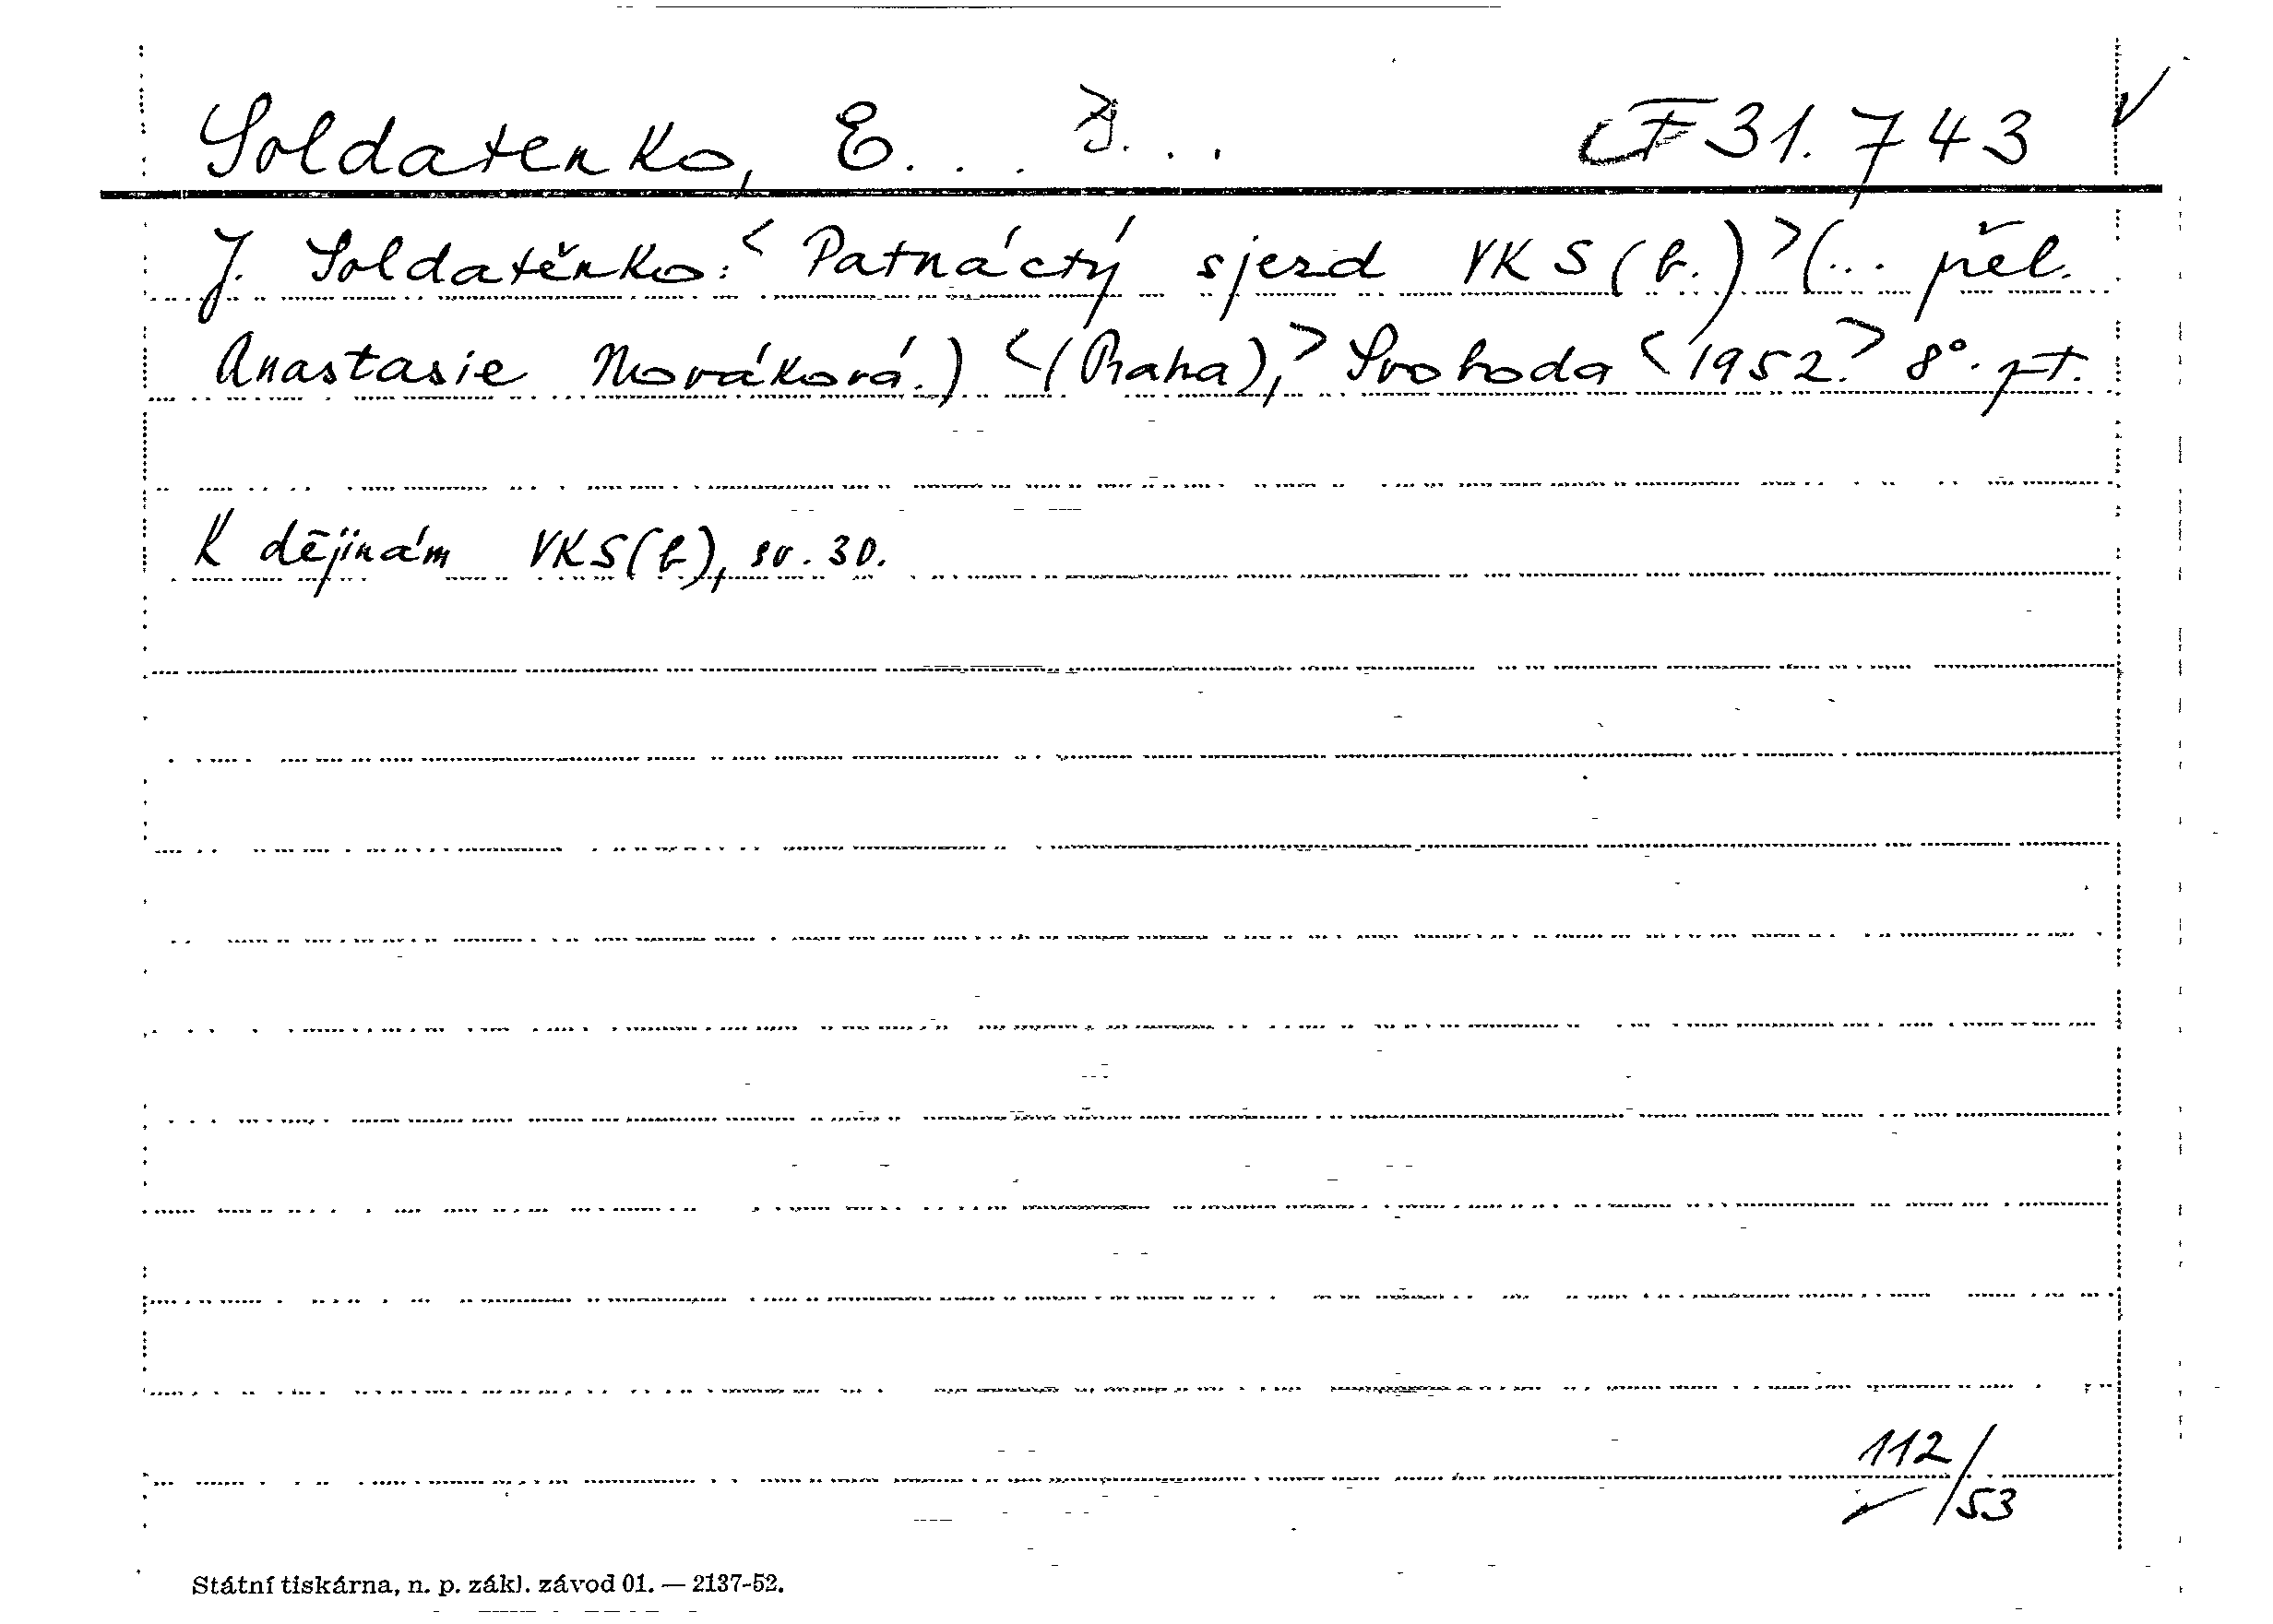 Soldatenko, E. . . J. . . F 31.743
J. Soldatěnko: <Patnáctý sjezd VKS(b.)> (... přel.
Anastasie Nováková.) <(Praha),> Svoboda <1952.> 8°. pt.
K dějinám VKS(b), sv. 30.
112/53
Státní tiskárna, n. p. zákl. závod 01. — 2137-52.